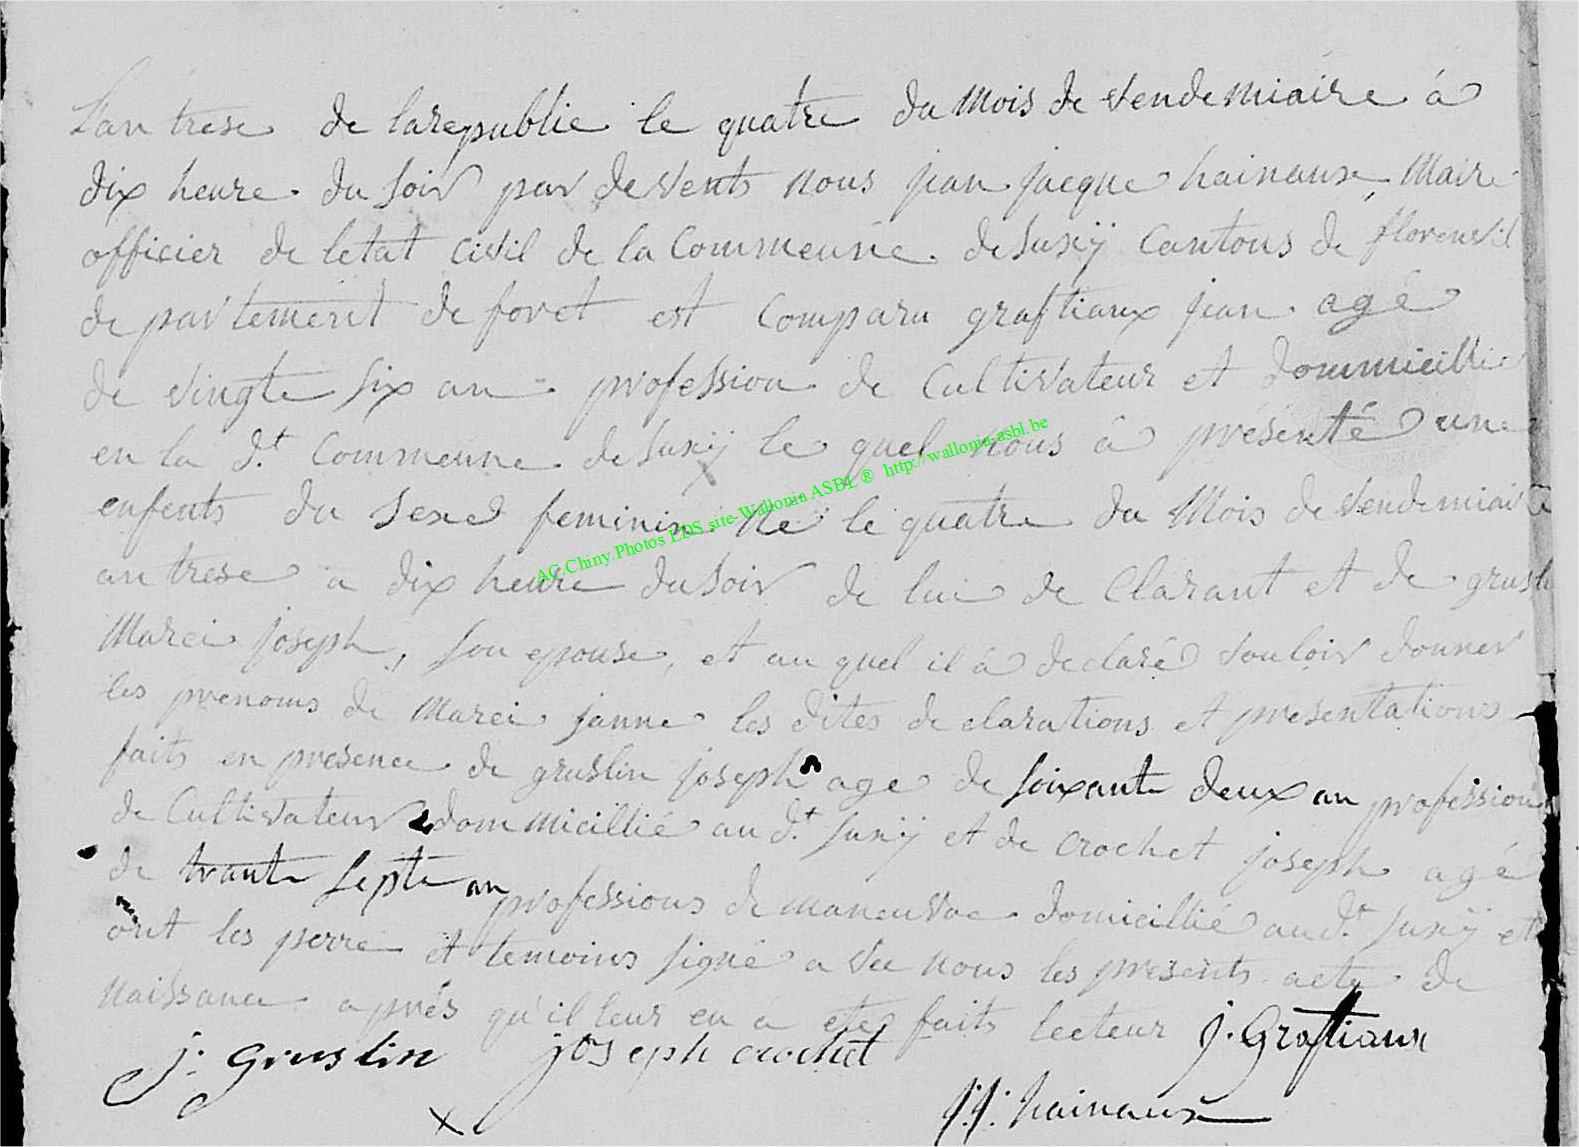 L'an trese de larepublie le quatre du Mois de Vendemiaire à
dix heure du soir par devents nous jean jacque hainaux, Maire
officier de letat civil de la Commeune de Suxÿ Cantons de florenvil
departement de foret est Comparu graftiaux jean agé
de vingte six an profession de Cultivateur et dommicillié
en la d.t Commeune de Suxÿ le quel nous à présenté une
enfents du sexe feminin Né le quatre du Mois de Vendemiaire
an trese a dix heure du soir de lui de Clarant et de grusl
Marei joseph, son epouse, et au quel il à declaré vouloir donner
les prenoms de Marei janne les dites de clarations et presentations
faits en presence de gruslin joseph age de soixante deux an profession
de Cultivateur dommicillié au d.t Suxÿ et de crochet joseph agé
de trante septe an professions de maneuvae domicillié au d.t Suxÿ et
ont les perre et temoins signé a vec nous les presents acte de
naissance aprés qu'il leur en a eté faits lecteur J. Graftiaux
j. Gruslin joseph crochet
j. j. hainaux
AG.Chiny.Photos EDS site-Wallonia ASBL ® http://wallonia-asbl.be